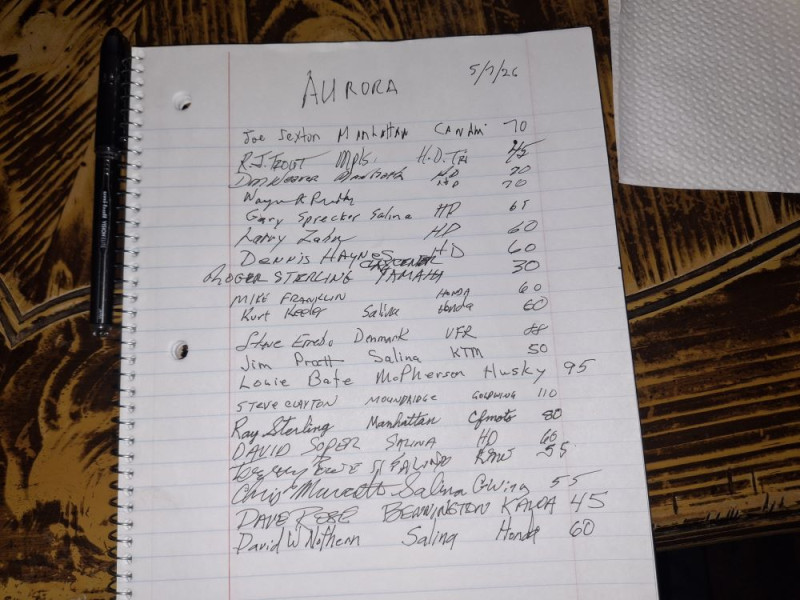 AURORA 5/7/26
Joe Sexton Manhattan CANAM 70
R.J. TROUT Mpls. H.D. TRI 45
Don Weaver HD 70
Wayne Pruitt HD 70
Gary Sprecker Salina HD 65
Larry HD 60
DENNIS HAYNES HD 60
ROGER STERLING YAMAHA 30
MIKE FRANKLIN HONDA 60
Kurt Keeler Salina Honda 60
Steve Denmark VFR 88
Jim Pratt Salina KTM 50
Louie Bate McPherson Husky 95
STEVE CLAYTON MOUNDRIDGE GOLDWING 110
Ray Sterling Manhattan Cfmoto 80
DAVID SOPER SALINA HD 60
SALINA 55
Chris Salina GWing 55
DAVE ROSE BENNINGTON KAWA 45
David W Nothern Salina Honda 60